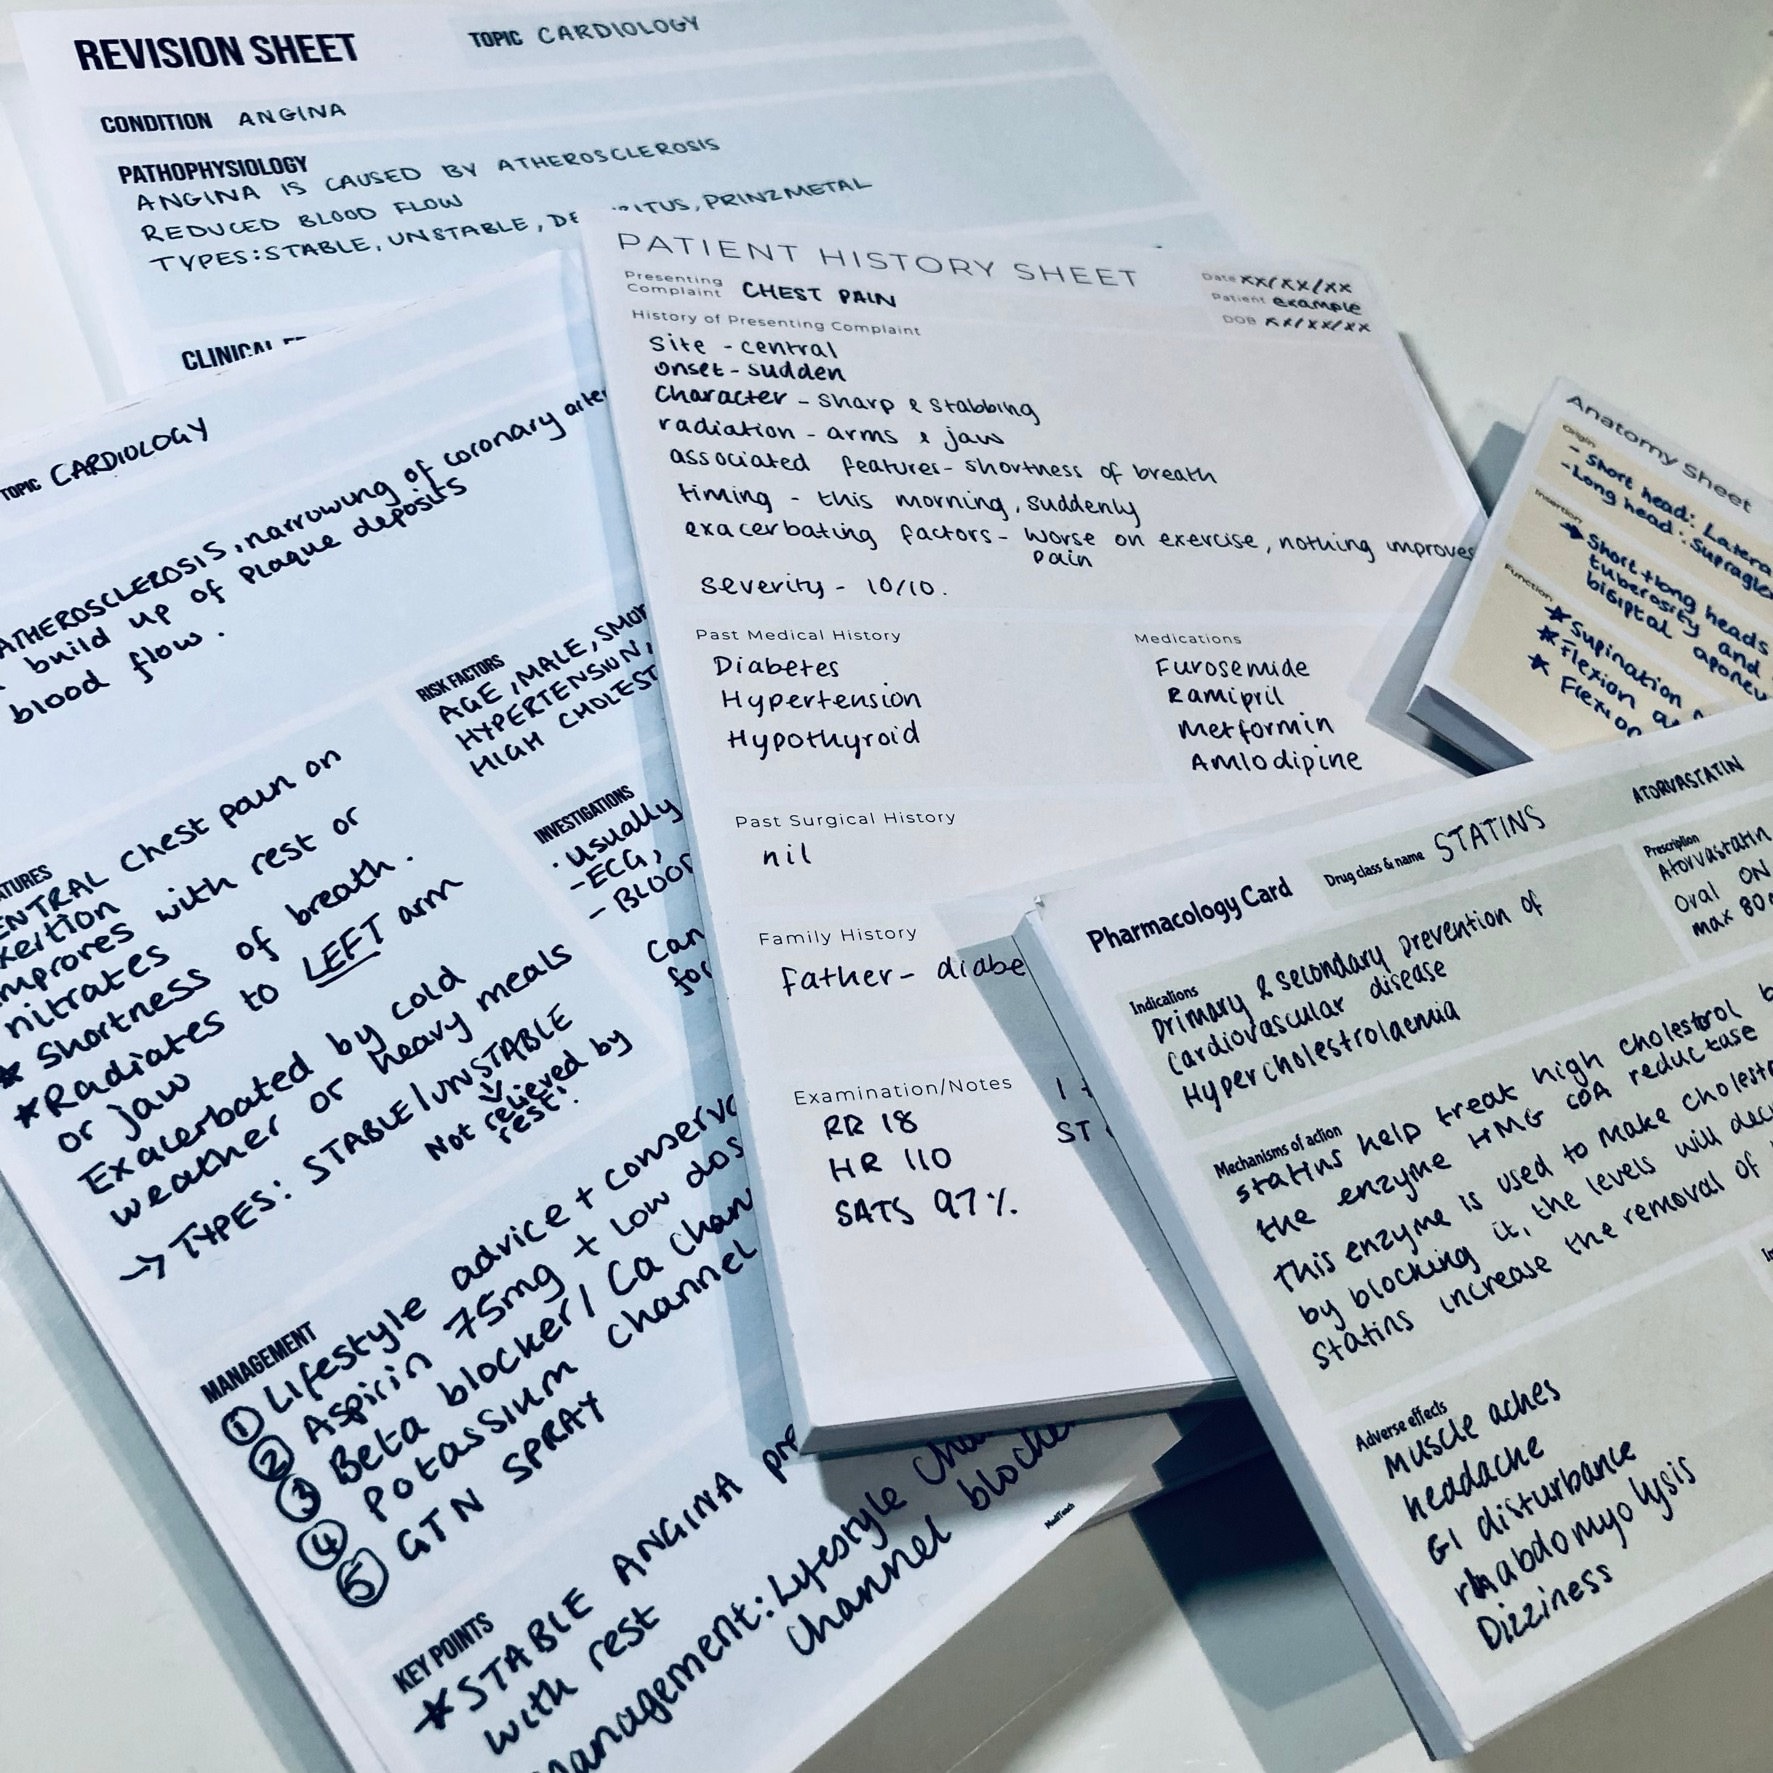 REVISION SHEET
TOPIC CARDIOLOGY
CONDITION ANGINA
PATHOPHYSIOLOGY
ANGINA IS CAUSED BY ATHEROSCLEROSIS
REDUCED BLOOD FLOW
TYPES: STABLE, UNSTABLE, DE ITUS, PRINZMETAL
CLINICAL
TOPIC CARDIOLOGY
ATHEROSCLEROSIS, narrowing of coronary
build up of plaque deposits
blood flow.
RISK FACTORS
AGE, MALE,
HYPERTENSION,
HIGH
INVESTIGATIONS
. usually
- ECG,
-
can
CENTRAL chest pain on
exertion
improres with rest or
nitrates
* Shortness of breath.
* Radiates to LEFT arm
or jaw
Exacerbated by cold
weather or heavy meals
→ TYPES: STABLE / UNSTABLE
Not relieved by
rest!
MANAGEMENT
① Lifestyle advice +
② Aspirin 75mg + low
③ Beta blocker / Ca
④ Potassium channel
⑤ GTN SPRAY
KEY POINTS
* STABLE ANGINA
with rest
management: Lifestyle
channel
MedTeach
PATIENT HISTORY SHEET
Date xx/xx/xx
Patient example
DOB xx/xx/xx
Presenting
Complaint CHEST PAIN
History of Presenting Complaint
Site - central
onset - sudden
Character - sharp & stabbing
radiation - arms & jaw
associated features - shortness of breath
timing - this morning, suddenly
exacerbating factors - worse on exercise, nothing improves
pain
severity - 10/10.
Past Medical History
Diabetes
Hypertension
Hypothyroid
Medications
Furosemide
Ramipril
Metformin
Amlodipine
Past Surgical History
nil
Family History
father - diabe
Examination/Notes
RR 18
HR 110
SATS 97%.
ST
Anatomy Sheet
Origin
- Short head:
- Long head:
Insertion
Short + long heads
tuberosity and
bisiptal
Function
* Supination
* Flexion
* Flexion
Pharmacology Card
Drug class & name STATINS
ATORVASTATIN
Prescription
Atorvastatin
Oral ON
max
Indications
Primary & secondary prevention of
cardiovascular disease
Hypercholestrolaemia
Mechanisms of action
statins help treat high cholestrol
the enzyme HMG COA reductase
This enzyme is used to make
by blocking it, the levels will
Statins increase the removal of
Adverse effects
Muscle aches
headache
GI disturbance
rhabdomyolysis
Dizziness